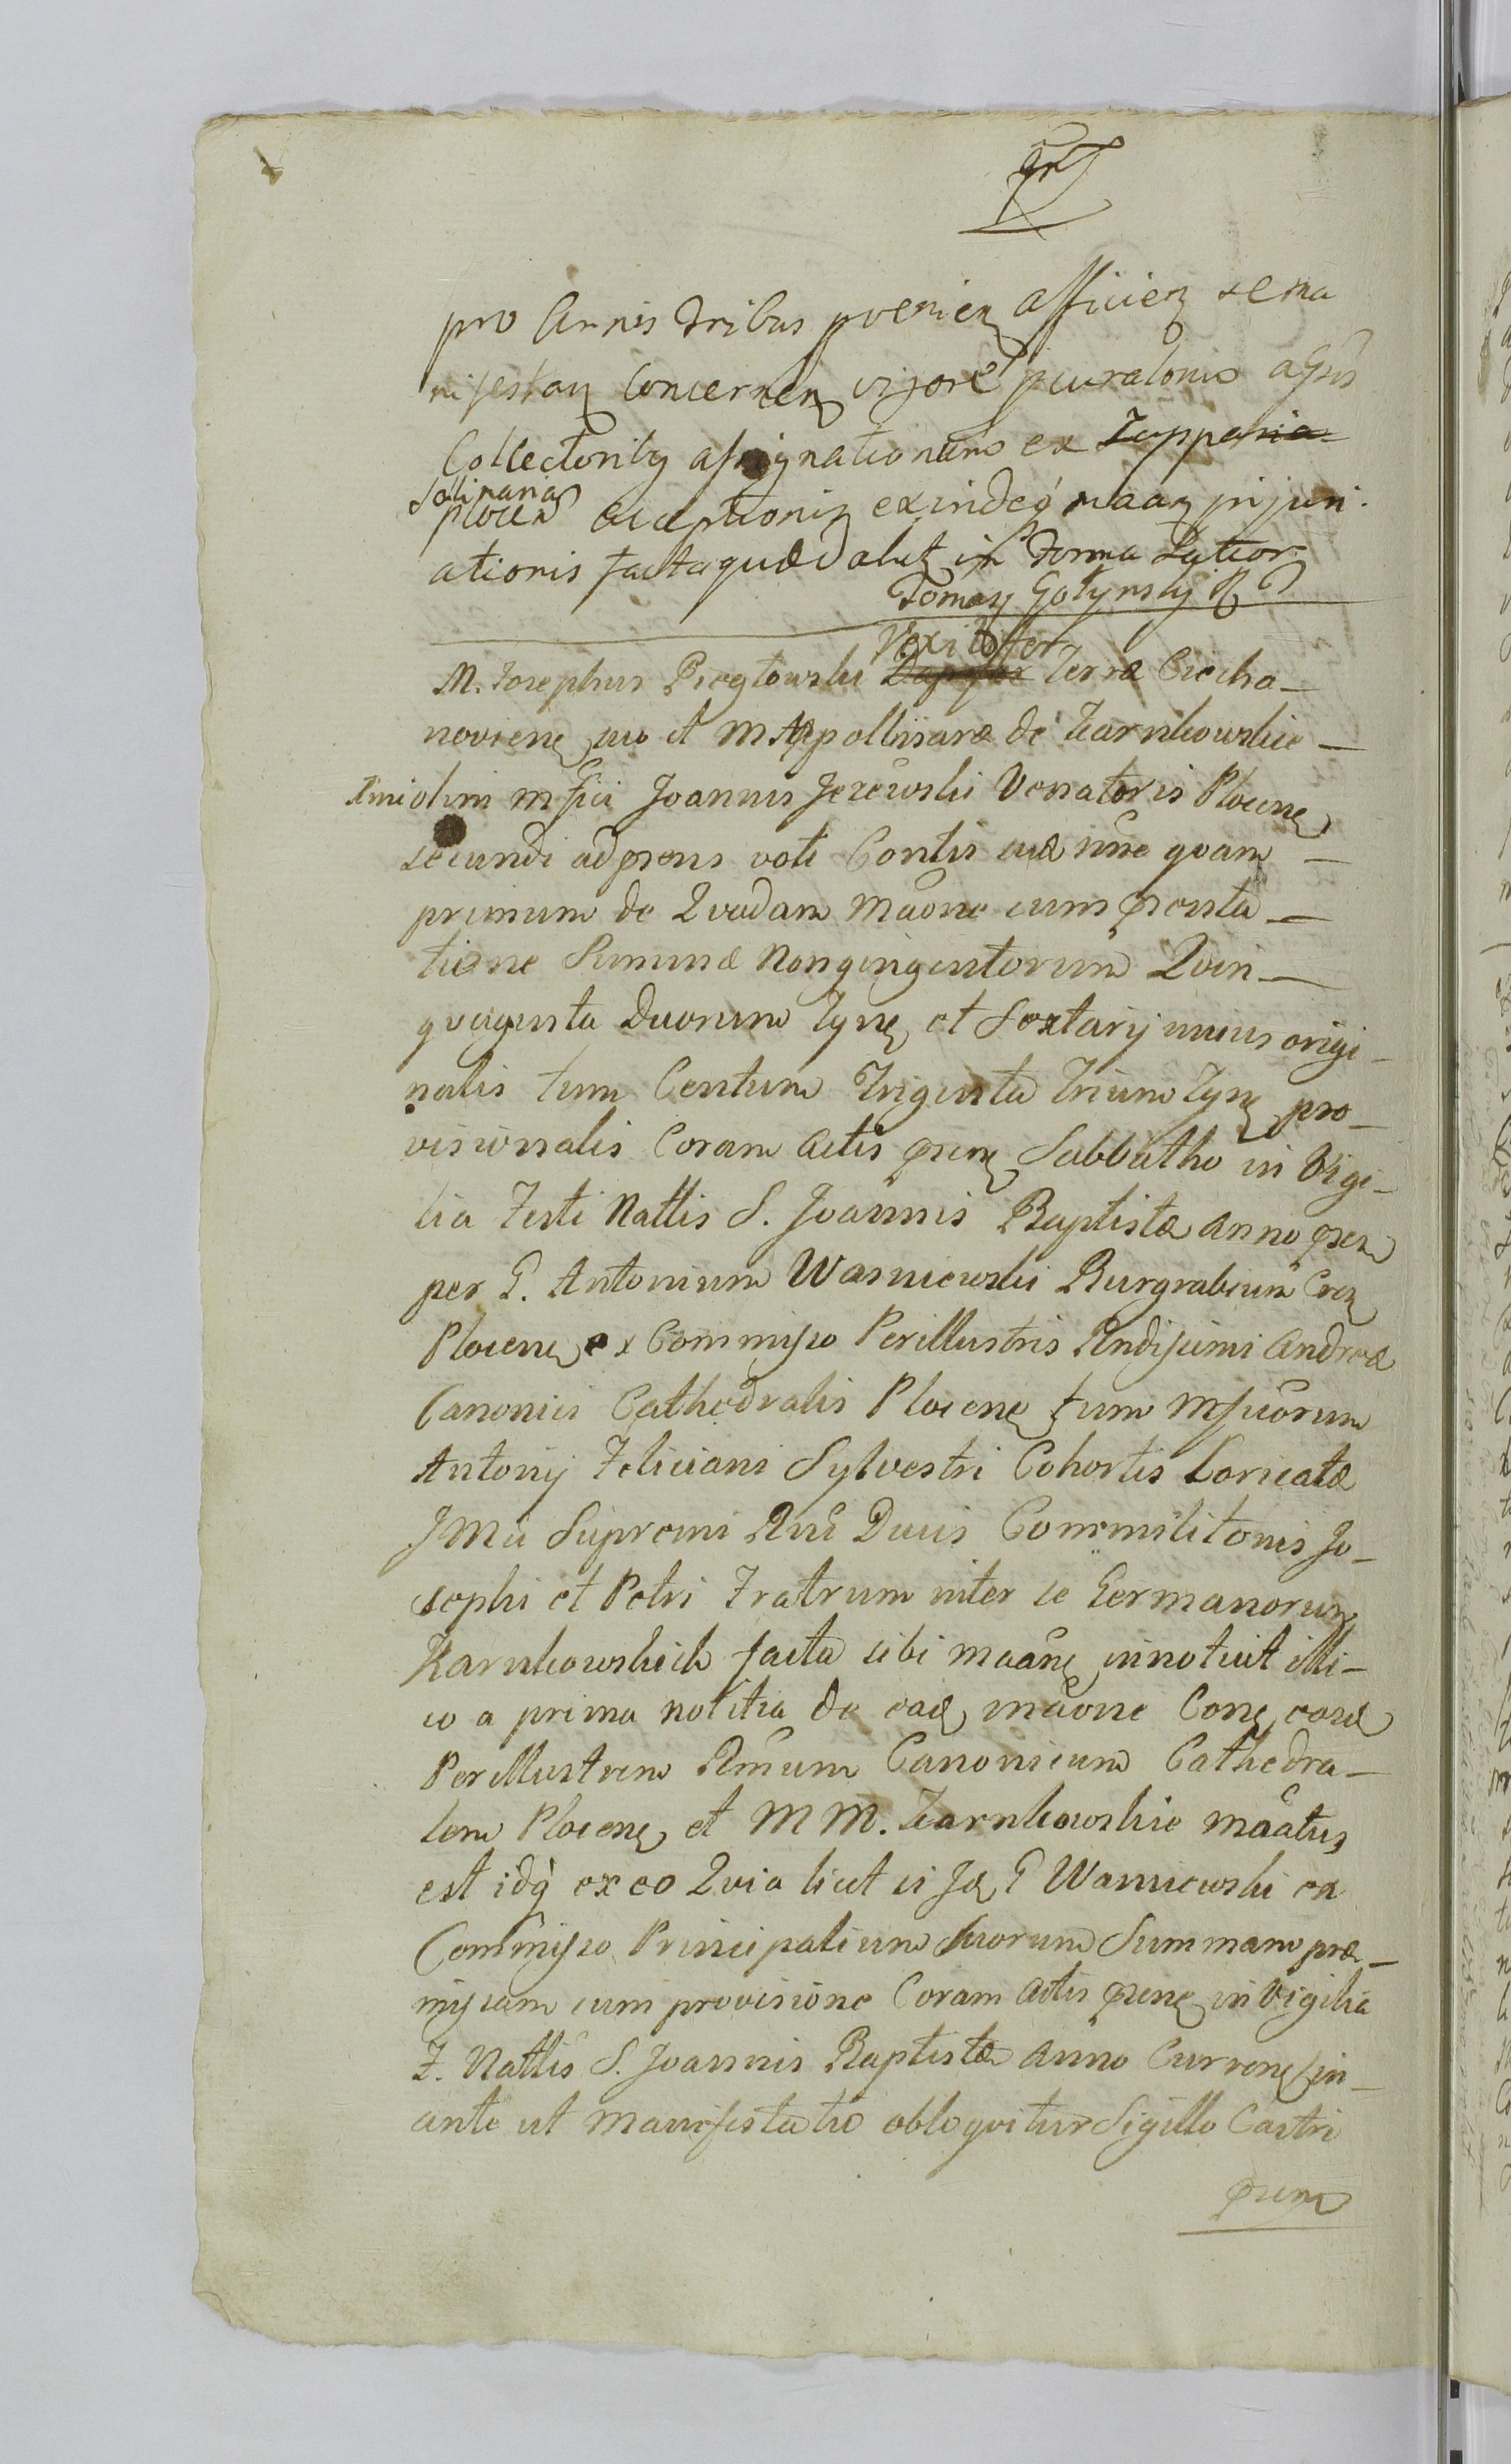 pro Annis tribus pvenien afficien se ma
nifestan concernen vigore pcurationis
Collectoribg assignationum ex Zuppania
Salinaria
plocen acceptionis exindeq maan
ationis facta quædaliz in Forma Latior
Tomasz Gołynsky
Vexilifer
M. Josephus Piegłowski Dapifer Terræ Ciecha—
noviene suo et M Appollinaræ de Karnkowskie—
1mi olim mfici Joannis Jezewski Venatoris Plocene
secundi adprens voti Contis suæ nne quam—
primum de Quadam maone cum præsenta—
tione Summæ Nongingentorum Quin—
quaginta Duorum tyne et Sextarij unius origi—
nalis tum Centum Triginta trium tyne pro—
visionalis Coram Actis prene Sabbatho in Vigi—
lia Festi Nattis S. Joannis Baptistæ anno pren
per G. Antonium Wasniewski Burgrabium Cren
Plocene ex Commisso Perillustris Rndissimi Andreæ
Canonici Cathedralis Plocene tum Mficorum
Antonij Feliciani Sylvestri Cohortis Loricatæ
JMci Supremi Rni Ducis Commilitonis Jo—
sephi et Petri Fratrum inter se Germanorum
Karnkowskich facta sibi maane innotuit illi—
co a prima notitia de eade maone Cone eosd
Perillustrem Rmum Canonicum Cathedra—
lem Plocene et MM. Karnkowskie maatus
est idq ex eo Quia licet is Je G Wasniewski ex
Commisso Principalium suorum Summam præ—
missam cum provisione Coram Actis prene in Vigilia
F. Nattis S. Joannis Baptistæ Anno Currene in—
ante ut Manifestatio obloquitur Sigillo Castri
prene